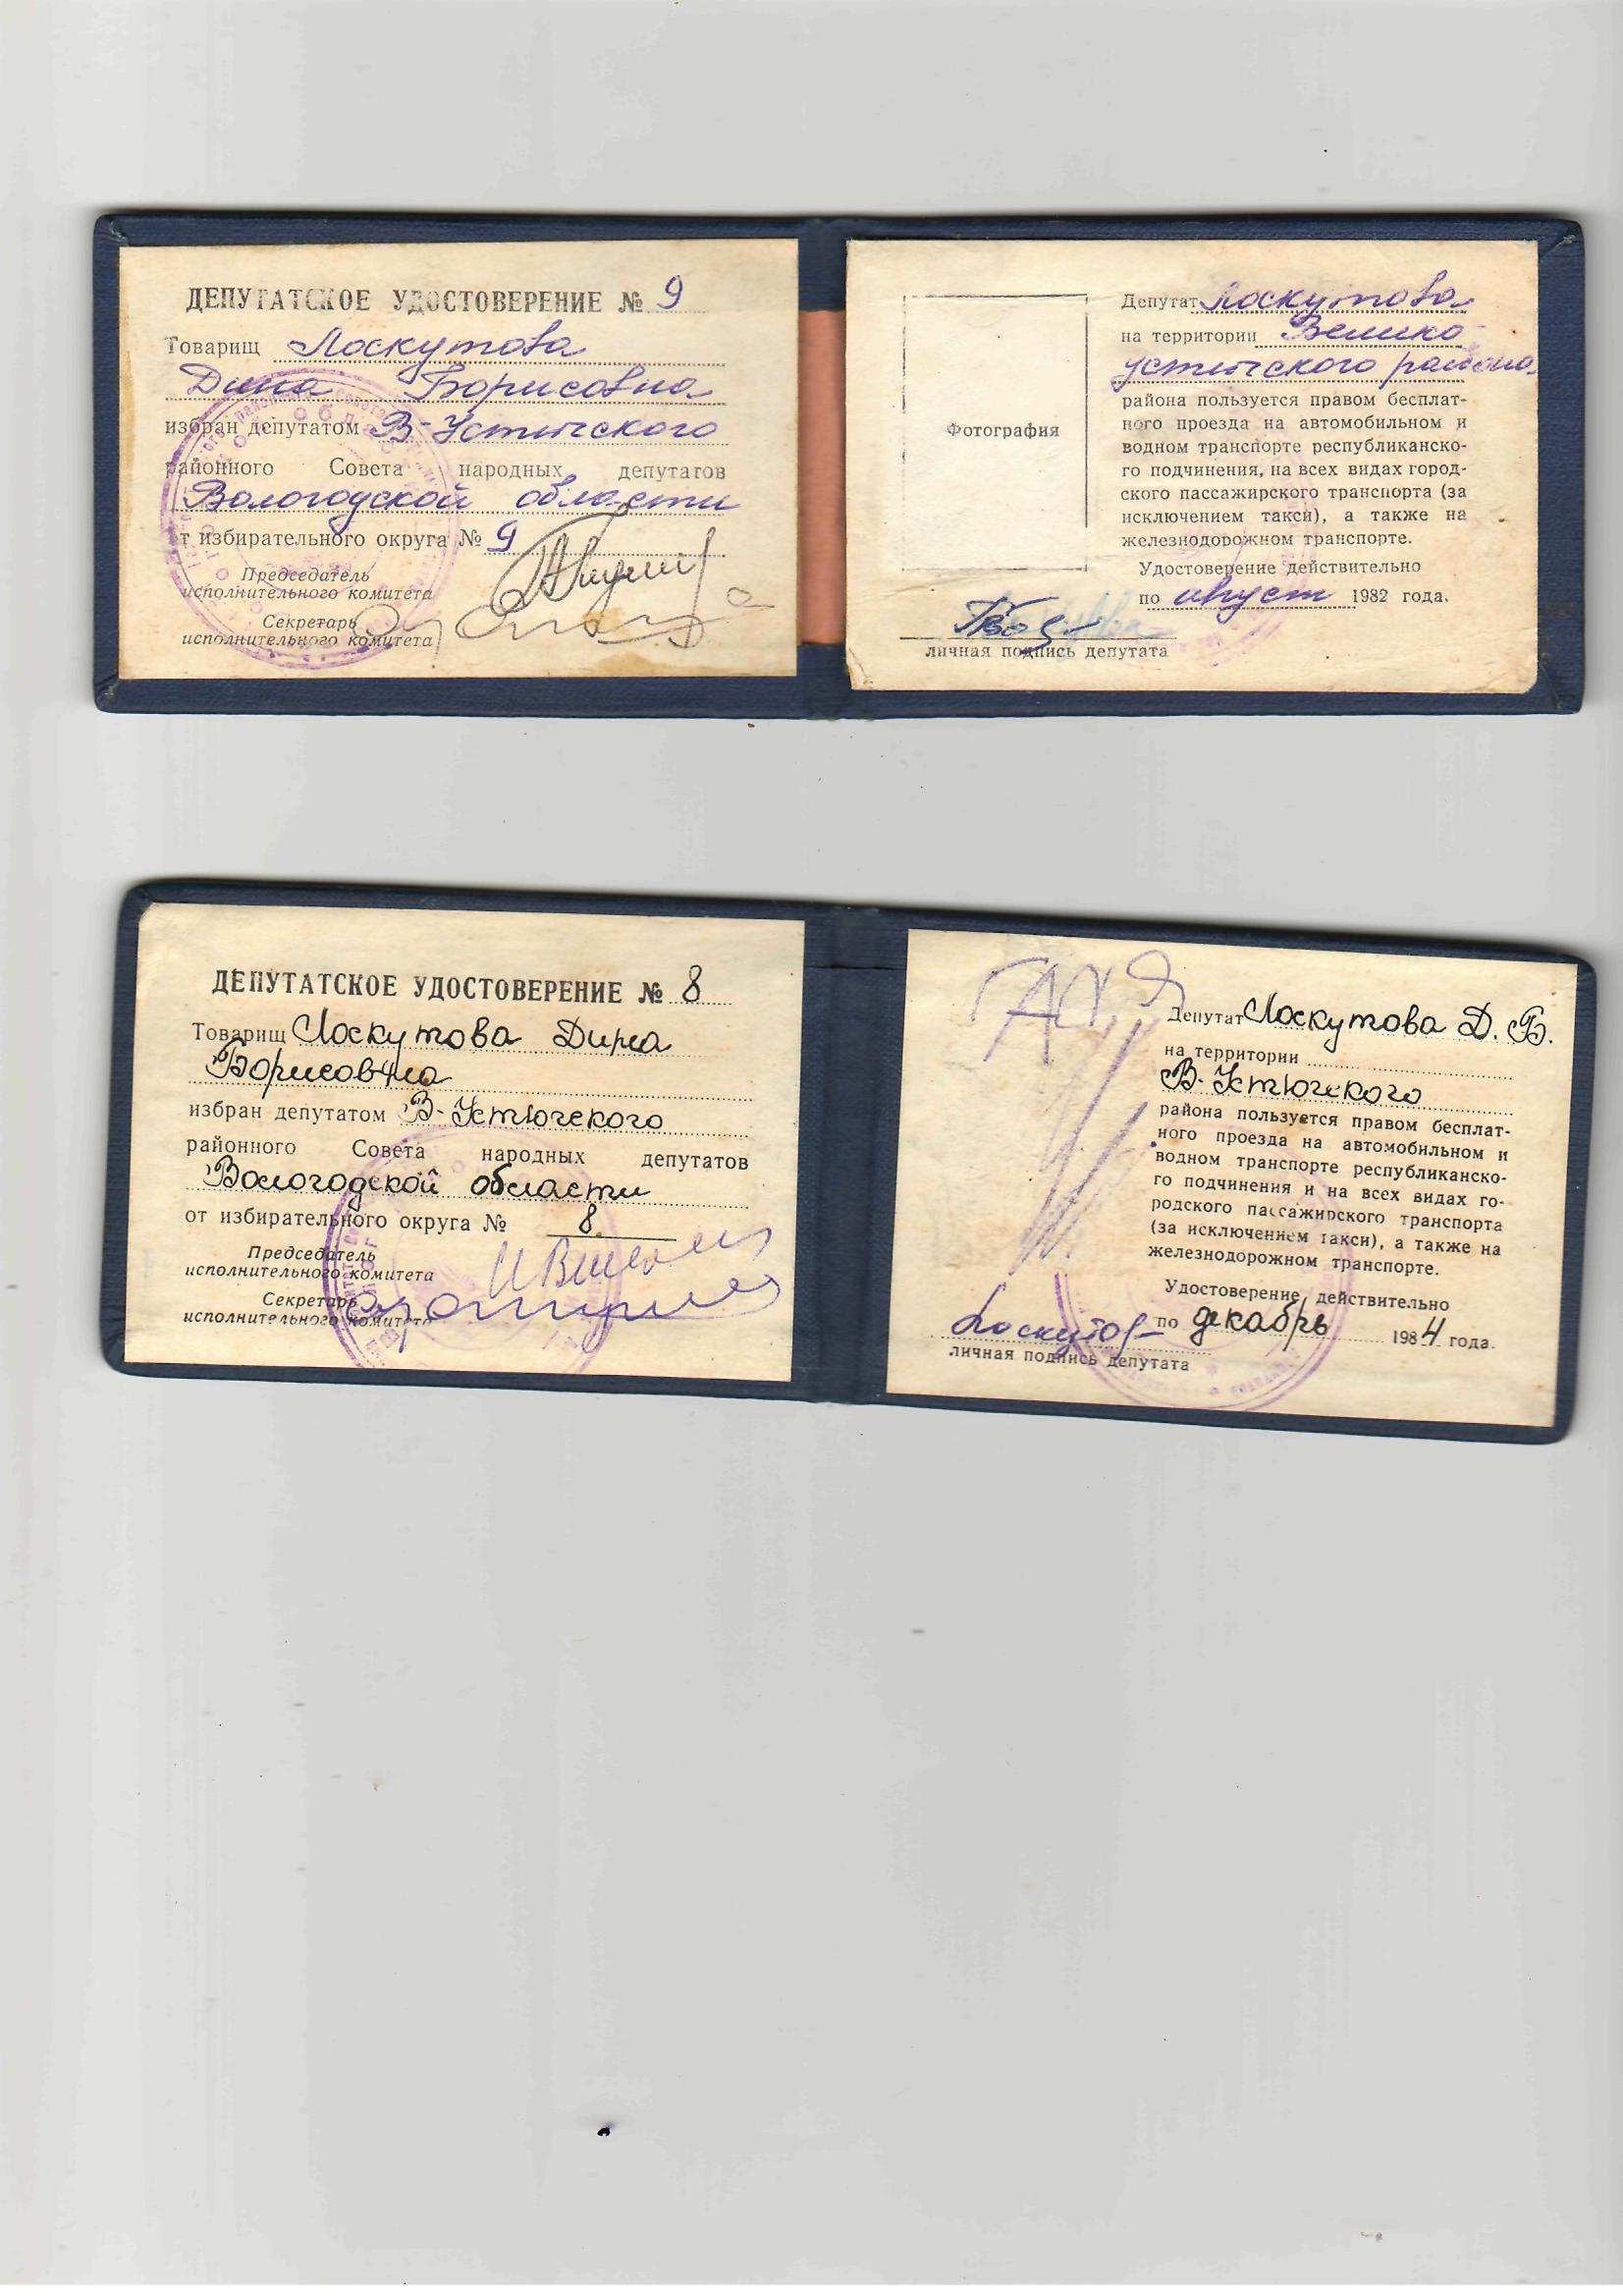 ДЕПУТАТСКОЕ УДОСТОВЕРЕНИЕ № 9
Товарищ Лоскутова
Дина Борисовна
избран депутатом В-Устюгского
районного Совета народных депутатов
Вологодской области
от избирательного округа № 9
Председатель
исполнительного комитета
Секретарь
исполнительного комитета
Фотография
личная подпись депутата
Депутат Лоскутова
на территории Велико-
устюгского района
района пользуется правом бесплат-
ного проезда на автомобильном и
водном транспорте республиканско-
го подчинения, на всех видах город-
ского пассажирского транспорта (за
исключением такси), а также на
железнодорожном транспорте.
Удостоверение действительно
по август 1982 года.
ДЕПУТАТСКОЕ УДОСТОВЕРЕНИЕ № 8
Товарищ Лоскутова Дина
Борисовна
избран депутатом В-Устюгского
районного Совета народных депутатов
Вологодской области
от избирательного округа № 8
Председатель
исполнительного комитета
Секретарь
исполнительного комитета
Депутат Лоскутова Д. Б.
на территории
В-Устюгского
района пользуется правом бесплат-
ного проезда на автомобильном и
водном транспорте республиканско-
го подчинения и на всех видах го-
родского пассажирского транспорта
(за исключением такси), а также на
железнодорожном транспорте.
Удостоверение действительно
по декабрь 1984 года.
личная подпись депутата